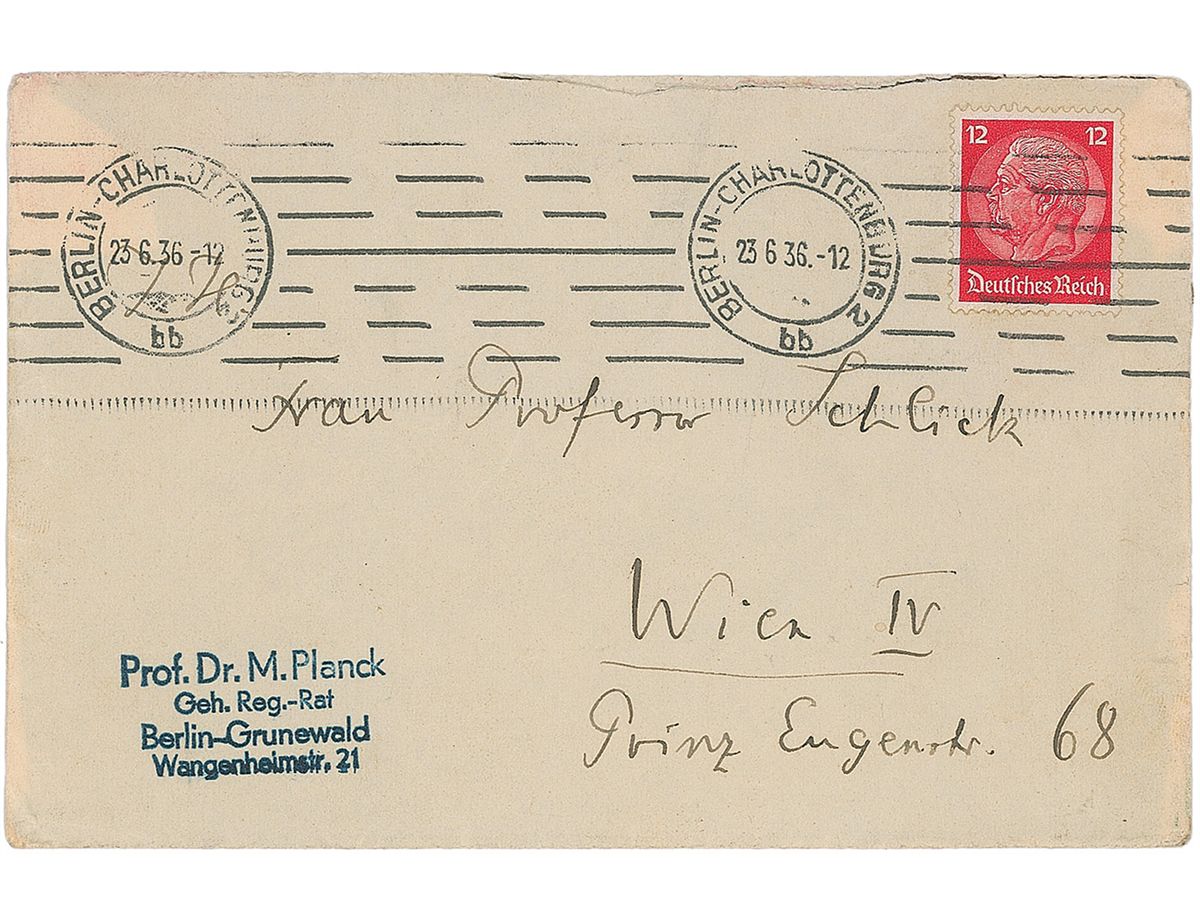 BERLIN-CHARLOTTENBURG 2
23.6.36.-12
bb
BERLIN-CHARLOTTENBURG 2
23.6.36.-12
bb
12 12
Deutsches Reich
Frau Professor Schlick
Wien IV
Prinz Eugenstr. 68
Prof. Dr. M. Planck
Geh. Reg.-Rat
Berlin-Grunewald
Wangenheimstr. 21